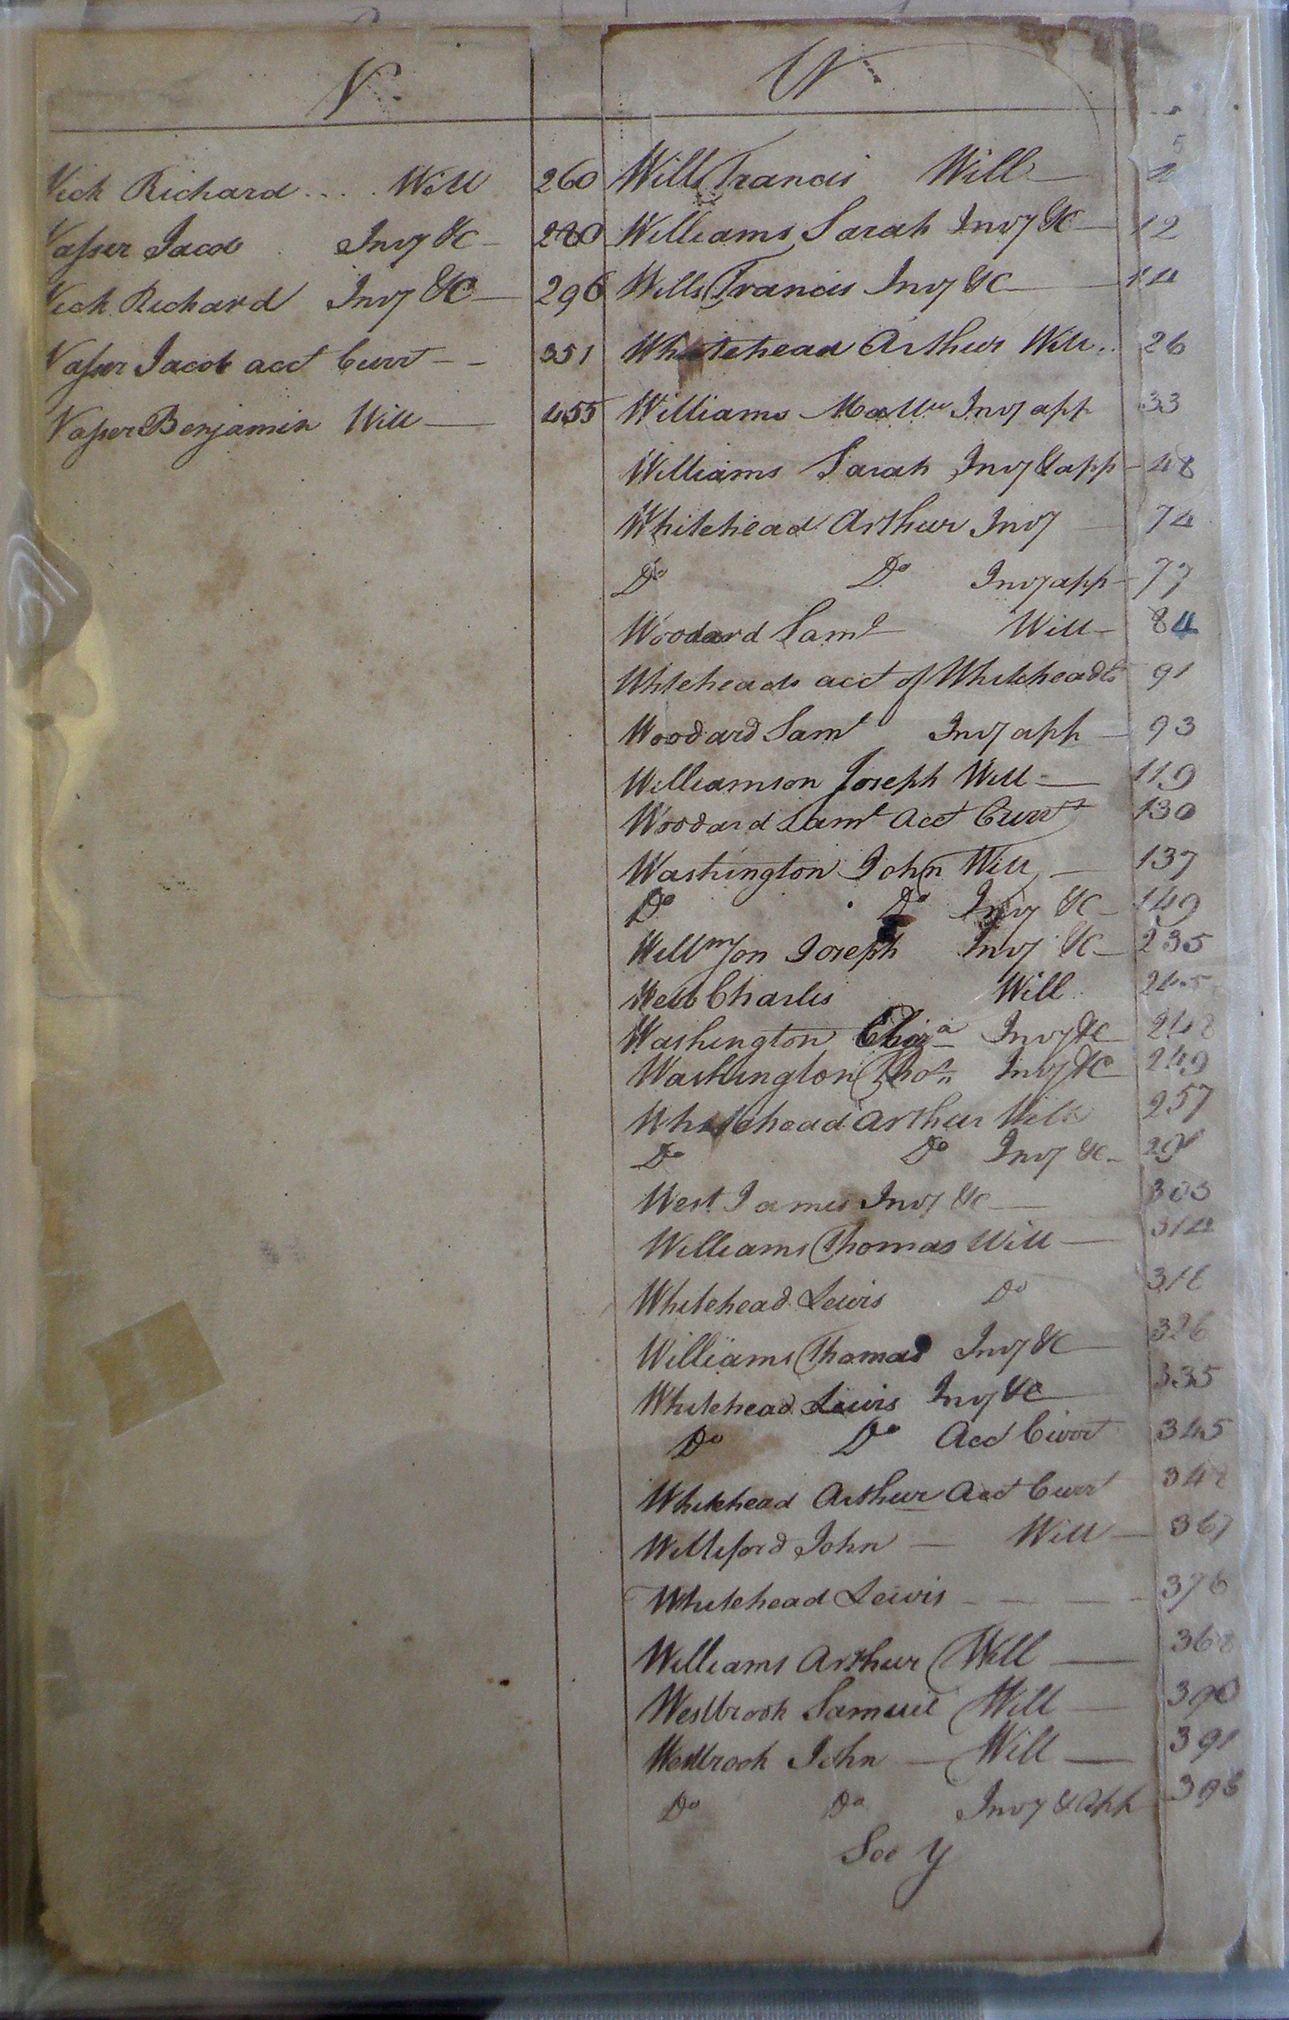 V
Vick Richard .... Will 260
Vaſser Jacob Invy &C 280
Vick Richard Invy &C 296
Vaſser Jacob acct Currt 351
Vaſser Benjamin Will 455
W
Wills Francis Will
Williams Sarah Invy &C 12
Wills Francis Invy &C 14
Whitehead Arthur Will 26
Williams Matt Invy app 33
Williams Sarah Invy & app 48
Whitehead Arthur Invy 74
Do Do Invy app 77
Woodard Saml Will 84
Whiteheads acct of Whitehead 91
Woodard Saml Invy app 93
Williamson Joseph Will 119
Woodard Saml Acct Currt 130
Washington John Will 137
Do Do Invy &C 149
Willmson Joseph Invy &C 235
West Charles Will 245
Washington Eliza Invy &C 248
Washington Thos Invy &C 249
Whitehead Arthur Will 257
Do Do Invy &C
West James Invy &C 303
Williams Thomas Will 314
Whitehead Lewis Do 318
Williams Thomas Invy &C 326
Whitehead Lewis Invy &C 335
Do Do Acct Currt 345
Whitehead Arthur Acct Currt 348
Williford John Will 367
Whitehead Lewis 376
Williams Arthur Will 368
Westbrook Samuel Will 390
Westbrook John Will 391
Do Do Invy & App 398
See Y